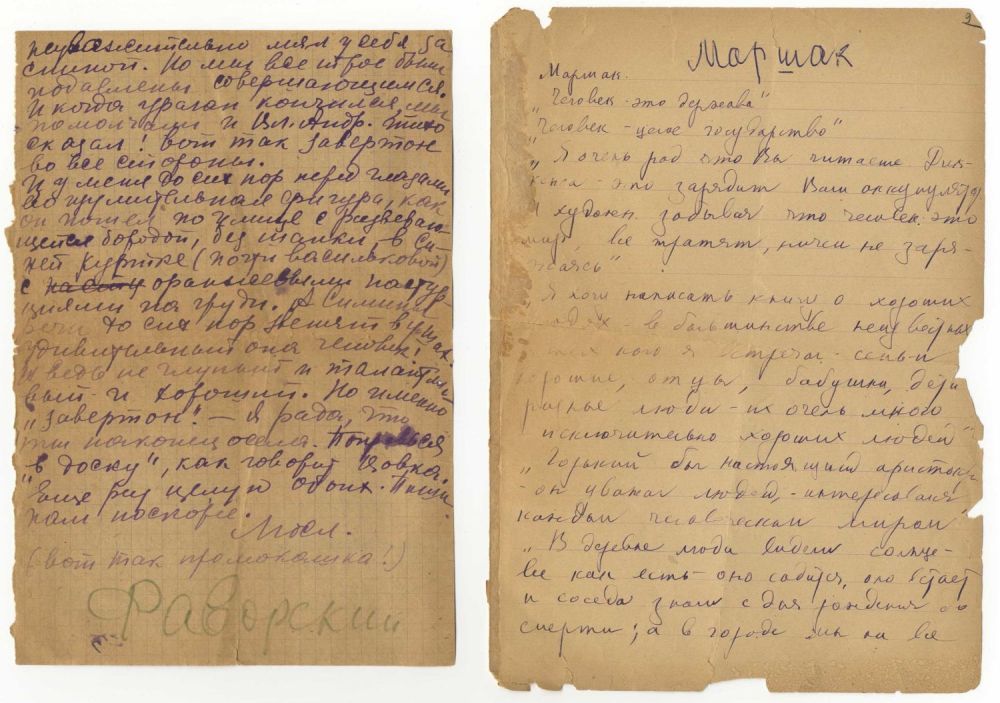 неуважительно мял у себя за
спиной. Но мы все трое были
подавлены совершающимся.
И когда ураган кончился, мы
помолчали и Вл. Андр. тихо
сказал! Вот так завертон
во все стороны.
И у меня до сих пор перед глазами
его фигура, как
он пошел по улице с развеваю-
щейся бородой, без шапки, в си-
ней куртке (почти васильковой)
с оранжевыми настур-
циями на груди. А
речи до сих пор звенят в ушах.
удивительный она человек!
И ведь не глупый и талантли-
вый и хороший. Но именно
"завертон". — Я рада, что
ты наконец осела.
в доску", как говорит
Еще раз целую обоих. Пиши
нам поскорее.
(вот так промокашка!)
Фаворский
9
Маршак
Маршак.
"Человек - это держава"
"Человек - целое государство"
"Я очень рад что Вы читаете Дик-
кенса - это зарядит Ваш аккумулятор
А художн. забывая что человек это
мир, все тратят, ничем не заря-
жаясь"
Я хочу написать книгу о хороших
людях - в большинстве неизвестных
тех кого я встречал - семьи
хорошие, отцы, бабушки, дети
разные люди - их очень много
исключительно хороших людей"
"Горький был настоящий аристокр.
- он уважал людей, - интересовался
каждым человеческим миром"
"В деревне люди видели солнце-
все как есть - оно садится, оно встает
и соседа знали с дня рождения до
смерти; а в городе мы на все